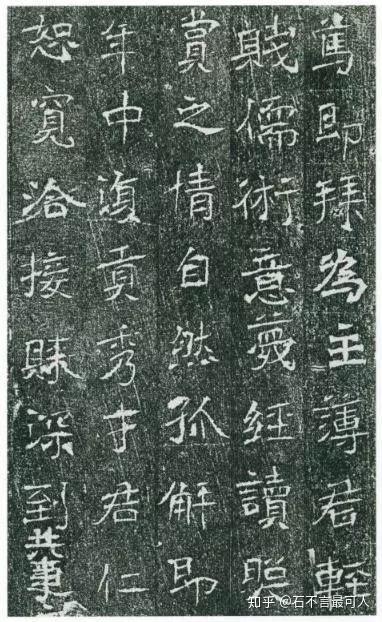 即拜為主薄君輕
賤儒術意蔑經讀照
賞之情自然孤解即
年中復貢秀才君仁
恕寬洽接深到共事
知乎 @石不言最可人